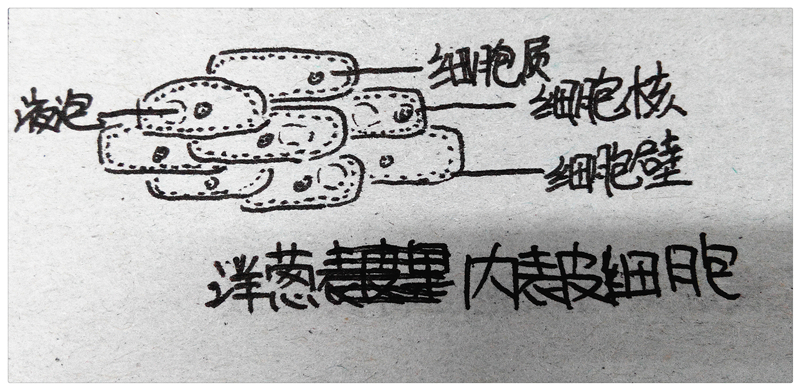 细胞质
液泡
细胞核
细胞壁
洋葱内表皮细胞